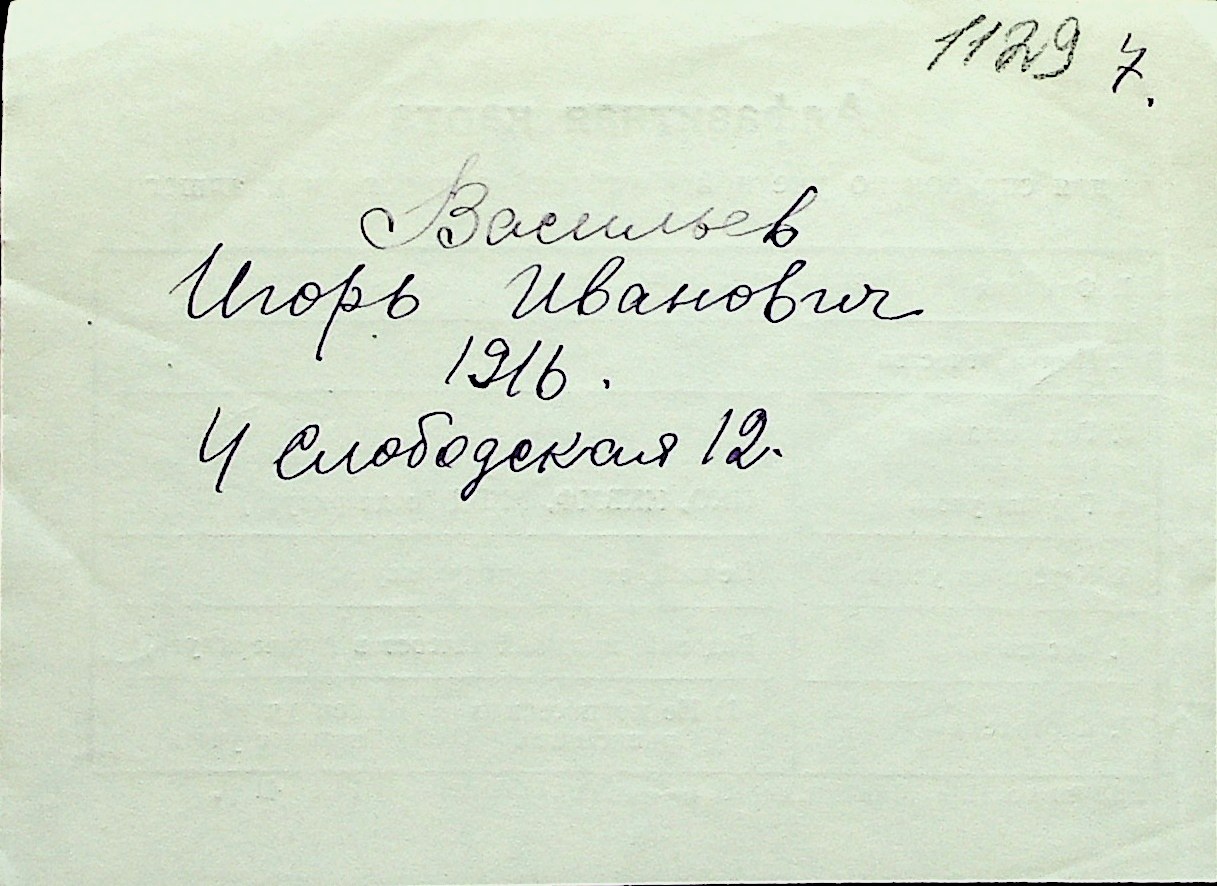 1129 7.
Васильев
Игорь Иванович
1916.
4 Слободская 12.